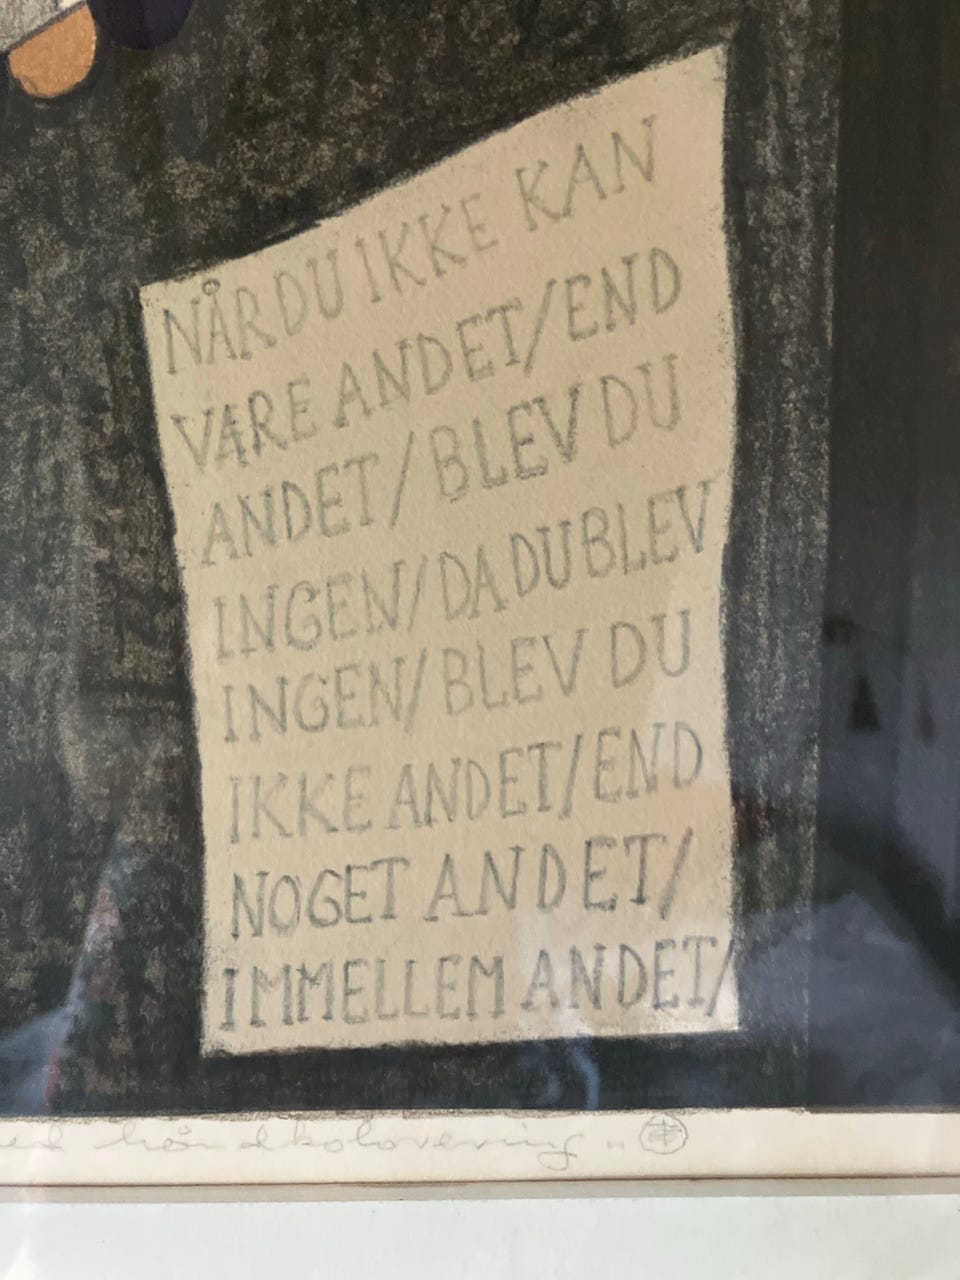 NÅR DU IKKE KAN
VÆRE ANDET/END
ANDET/BLEV DU
INGEN/DA DU BLEV
INGEN/BLEV DU
IKKE ANDET/END
NOGET ANDET/
IMMELLEM ANDET/
håndkolorering